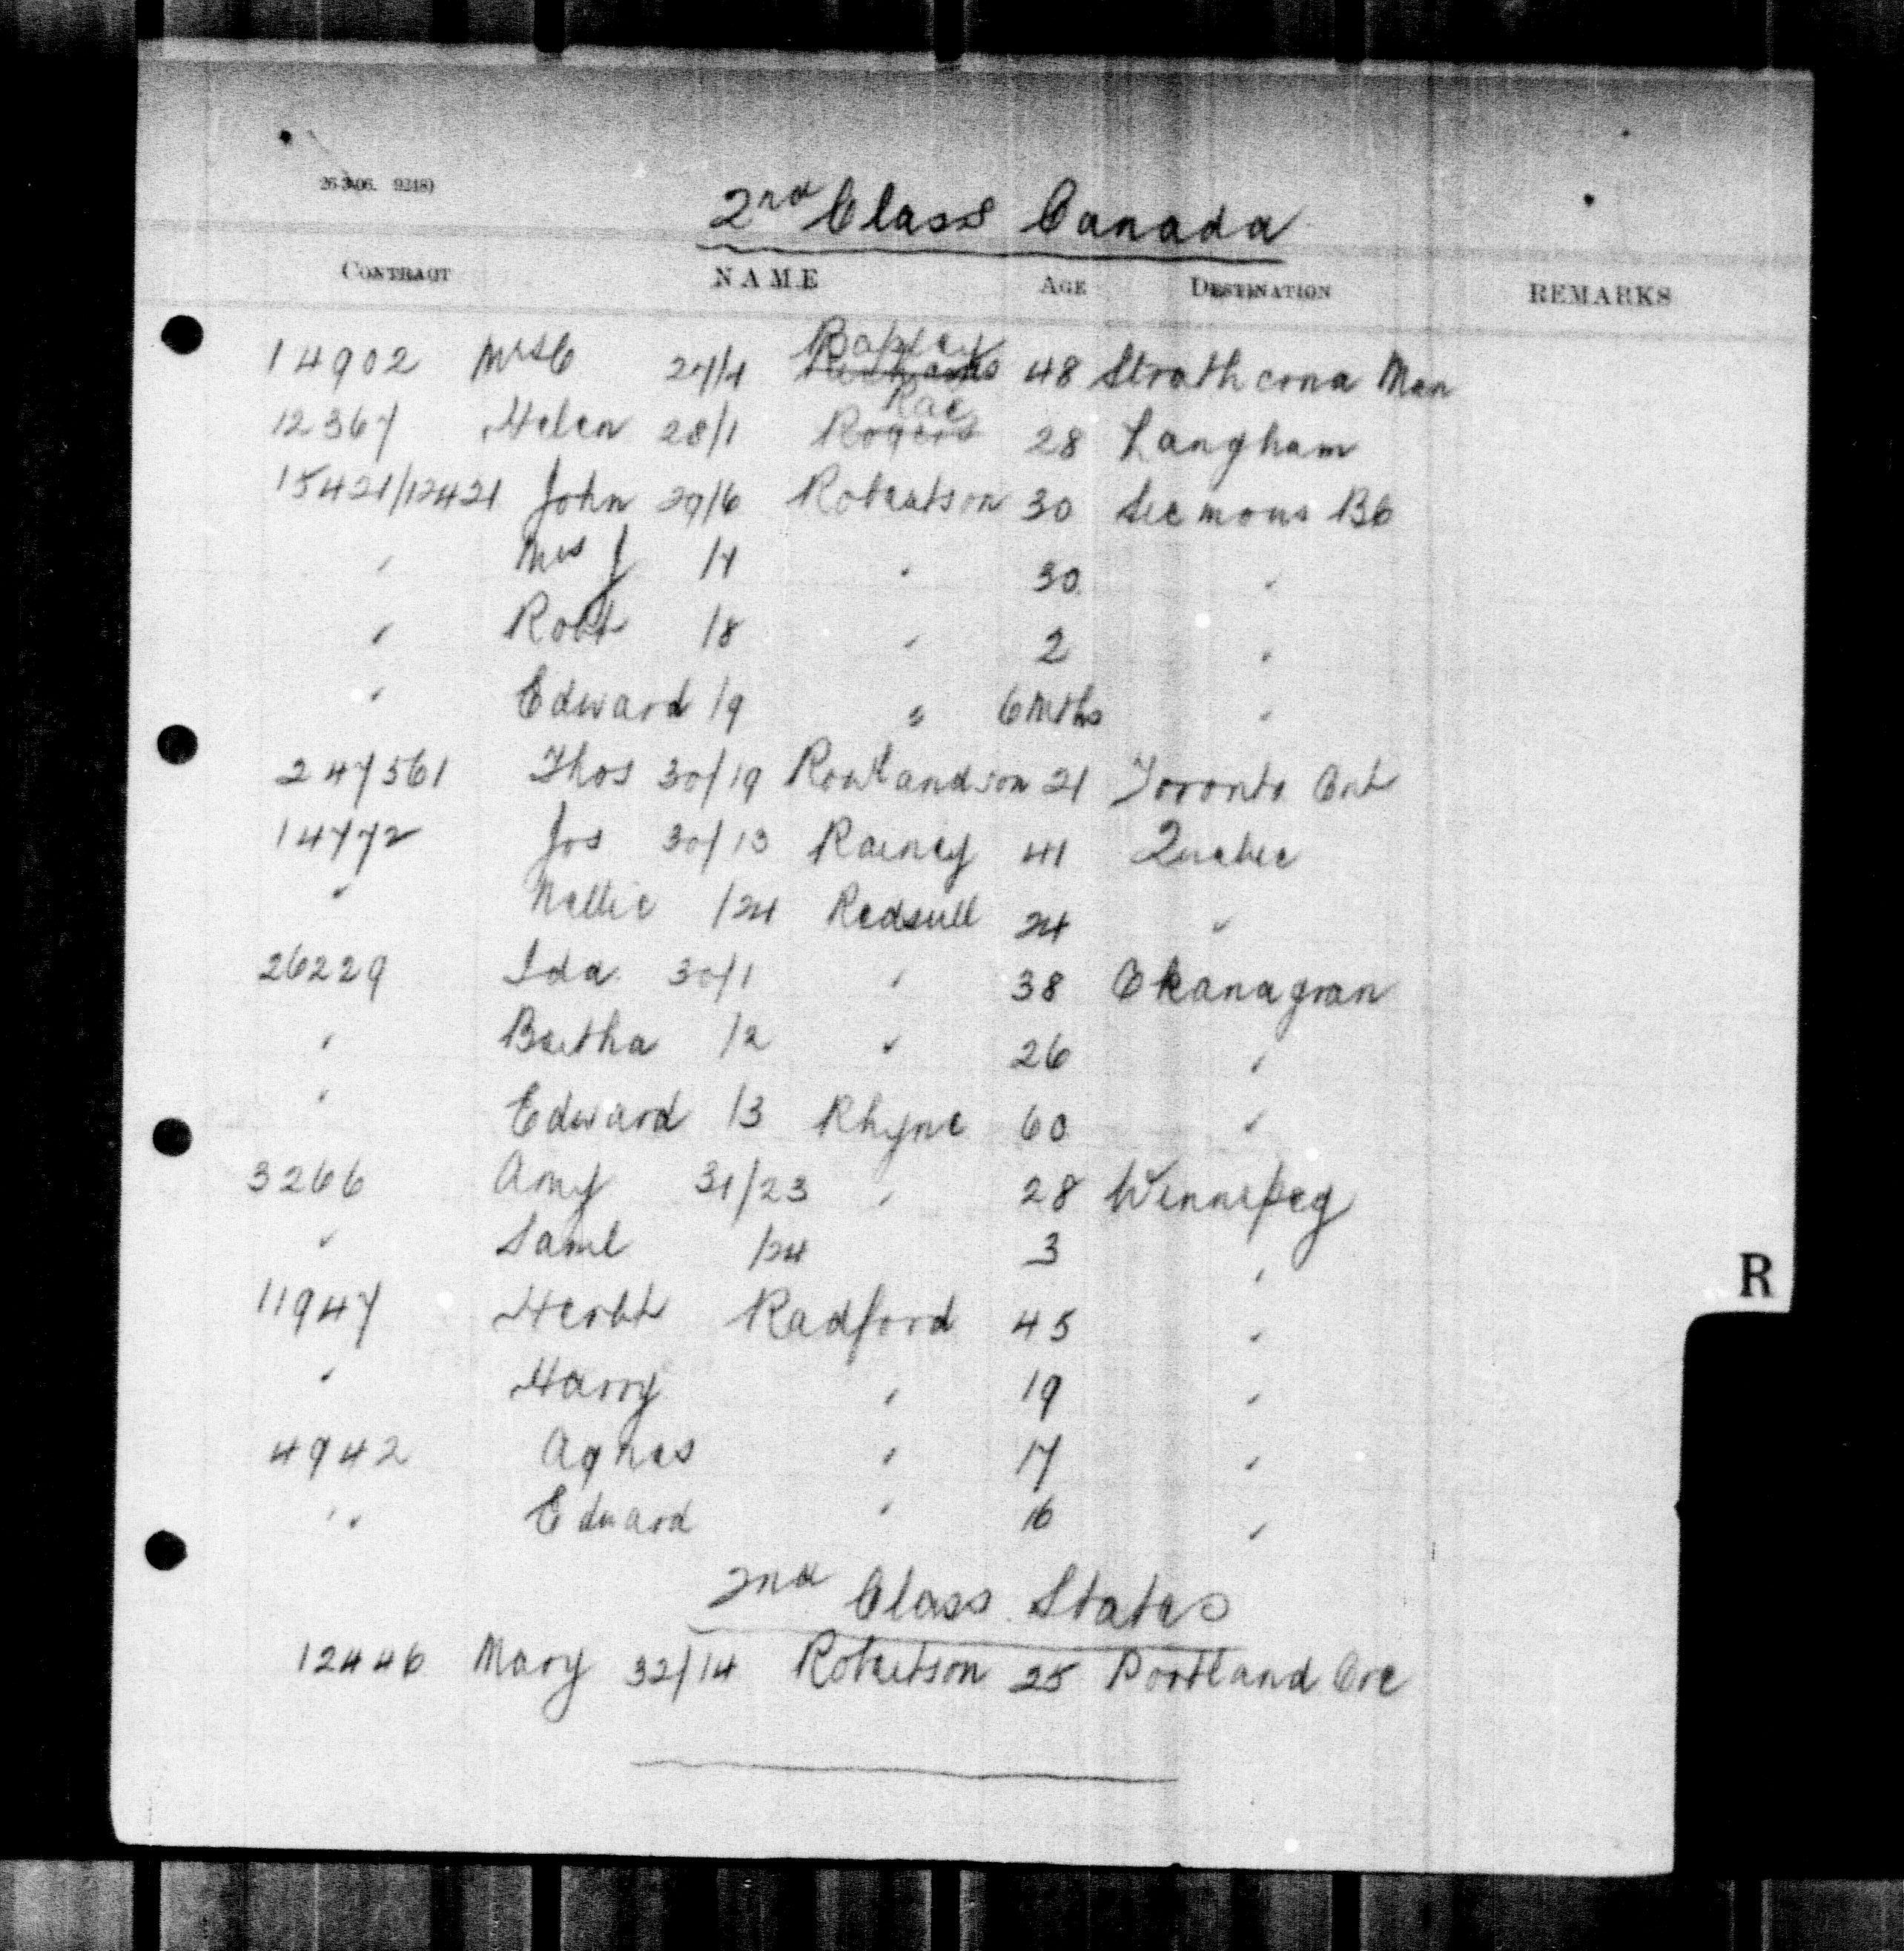 26-3-06. 9248)
2nd Class Canada
CONTRACT NAME AGE DESTINATION REMARKS
Rapley
14902 Mrs C 27/4 48 Strathcona Man
Rae
12367 Helen 28/1 Rogers 28 Langham
15421/12421 John 29/6 Robertson 30 Sicmous BC
" Mrs J /7 " 30 "
" Robt /8 " 2 "
" Edward /9 " 6 Mths "
247561 Thos 30/19 Rowlandson 21 Toronto Ont
14772 Jos 30/13 Rainey 41 Quebec
" Nellie /24 Redsull 24 "
26229 Ida 30/1 " 38 Okanagan
" Bertha /2 " 26 "
" Edward /3 Rhyne 60 "
3266 Amy 31/23 " 28 Winnipeg
" Saml /24 3 "
11947 Herbt Radford 45 "
" Harry " 19 "
4942 Agnes " 17 "
" Edward " 16 "
R
2nd Class States
12446 Mary 32/14 Robertson 25 Portland Ore